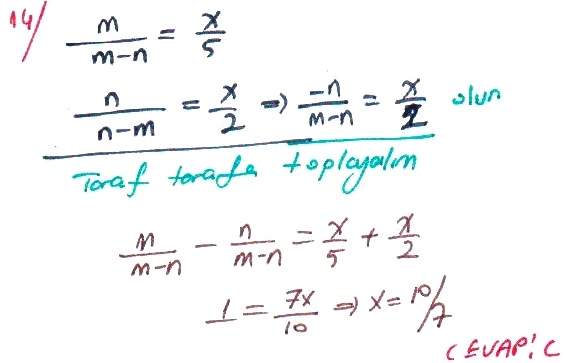 14/ m/(m-n) = x/5
n/(n-m) = x/2 ⇒ -n/(m-n) = x/2 olur
Taraf tarafa toplayalım
m/(m-n) - n/(m-n) = x/5 + x/2
1 = 7x/10 ⇒ x = 10/7
CEVAP: C